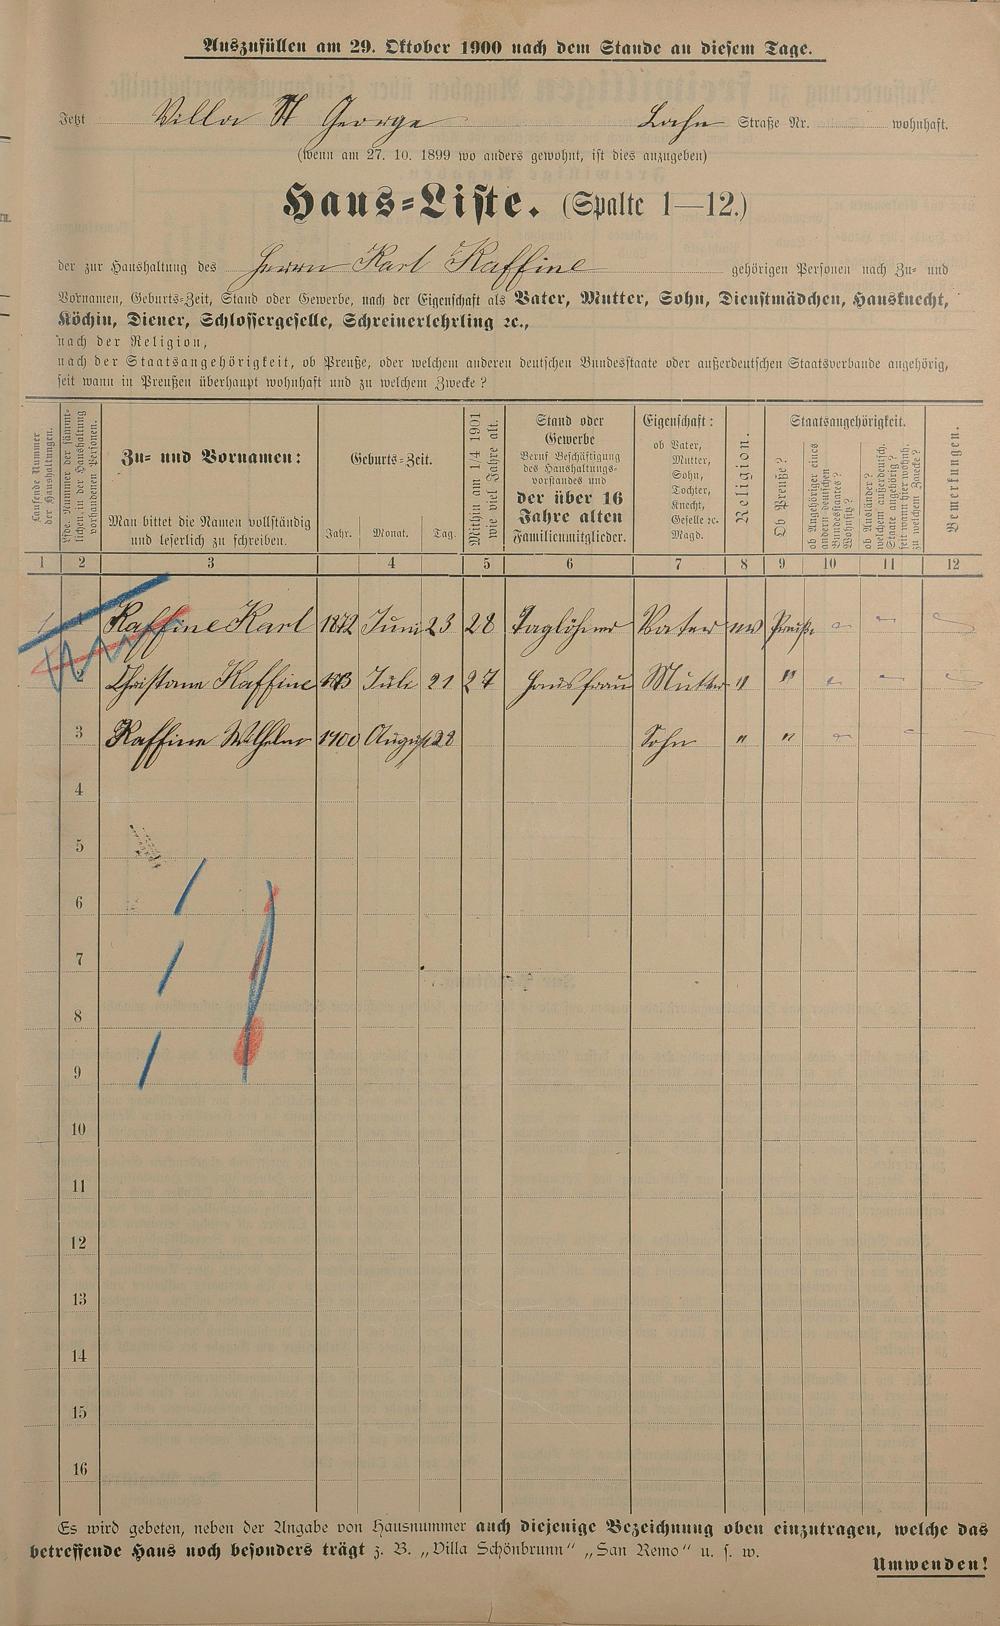 Auszufüllen am 29. Oktober 1900 nach dem Stande an diesem Tage.
Jetzt Villa St George Lahn Straße Nr. wohnhaft.
(wenn am 27. 10. 1899 wo anders gewohnt, ist dies anzugeben)
Haus=Liste. (Spalte 1—12.)
der zur Haushaltung des Herrn Karl Kaffine gehörigen Personen nach Zu- und
Vornamen, Geburts-Zeit, Stand oder Gewerbe, nach der Eigenschaft als Vater, Mutter, Sohn, Dienstmädchen, Hausknecht,
Köchin, Diener, Schlossergeselle, Schreinerlehrling ꝛc.,
nach der Religion,
nach der Staatsangehörigkeit, ob Preuße, oder welchem anderen deutschen Bundesstaate oder außerdeutschen Staatsverbande angehörig,
seit wann in Preußen überhaupt wohnhaft und zu welchem Zwecke?
Laufende Nummer der Haushaltungen.
Lfde. Nummer der sämmt-
lichen in der Haushaltung
vorhandenen Personen.
Zu- und Vornamen:
Man bittet die Namen vollständig
und leserlich zu schreiben.
Geburts-Zeit.
Jahr. Monat. Tag.
Mithin am 1/4 1901
wie viel Jahre alt.
Stand oder
Gewerbe
Beruf Beschäftigung
des Haushaltungs-
vorstandes und
der über 16
Jahre alten
Familienmitglieder.
Eigenschaft:
ob Vater,
Mutter,
Sohn,
Tochter,
Knecht,
Geselle ꝛc.
Magd.
Religion.
Staatsangehörigkeit.
Ob Preuße?
ob Angehöriger eines
andern deutschen
Bundesstaates?
Wohnsitz?
ob Ausländer?
welchem außerdeutsch.
Staate angehörig?
seit wann hier wohnh.
zu welchem Zwecke?
Bemerkungen.
1 2 3 4 5 6 7 8 9 10 11 12
1 1 Kaffine Karl 1872 Juni 23 28 Taglöhner Vater ev Preuße
2 Christane Kaffine 1873 Jule 21 27 Hausfrau Mutter " "
3 Kaffine Wilhelm 1900 August 28 Sohn " "
4
5
6
7
8
9
10
11
12
13
14
15
16
Es wird gebeten, neben der Angabe von Hausnummer auch diejenige Bezeichnung oben einzutragen, welche das
betreffende Haus noch besonders trägt z. B. „Villa Schönbrunn“ „San Remo“ u. s. w.
Umwenden!